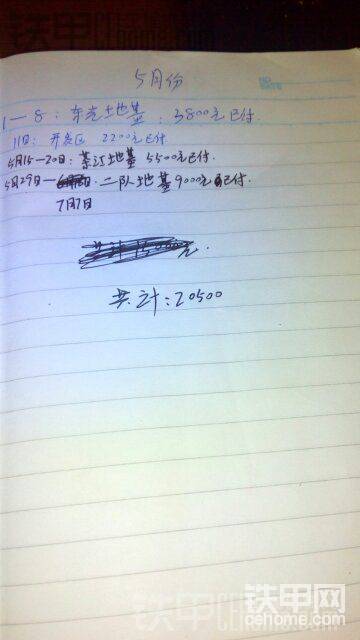 5月份
1—8：东光地基：3800元已付.
11日：开发区 2200元已付
5月15—20日：茶江地基 5500元已付.
5月29日— 二队地基9000元已付
7月7日
共计
元.
共计：20500
铁甲网